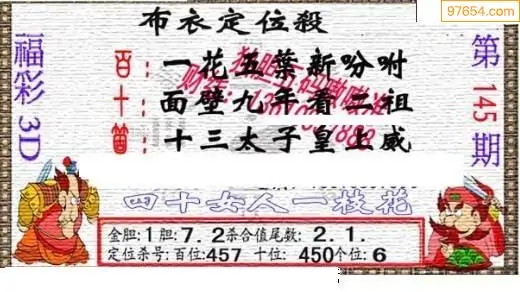 97654.com
布衣定位殺
福彩3D
第145期
百：一花五葉新吩咐
十：面壁九年看二祖
個：十三太子皇上威
四十女人一枝花
金胆:1胆:7.2杀合值尾数:2.1.
定位杀号:百位:457 十位:450个位:6